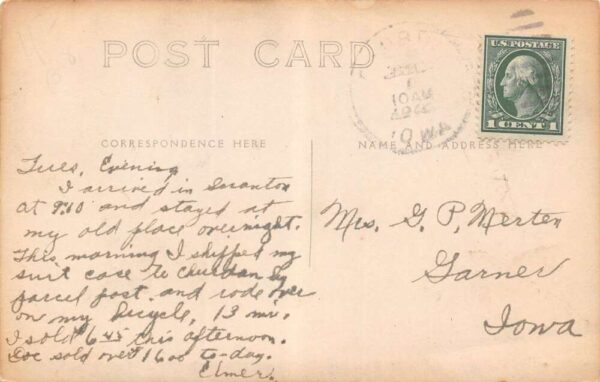 POST CARD
10 AM
IOWA
U.S. POSTAGE
1 CENT 1
CORRESPONDENCE HERE
NAME AND ADDRESS HERE
Tues, Evening
I arrived in Scranton
at 9:10 and stayed at
my old place overnight.
This morning I shipped my
suit case to Churdan by
parcel post, and rode over
on my bicycle, 13 mi.
I sold 6 45 this afternoon.
Doc sold over 16 00 to-day.
Elmer.
Mrs. G. P. Merten
Garner
Iowa